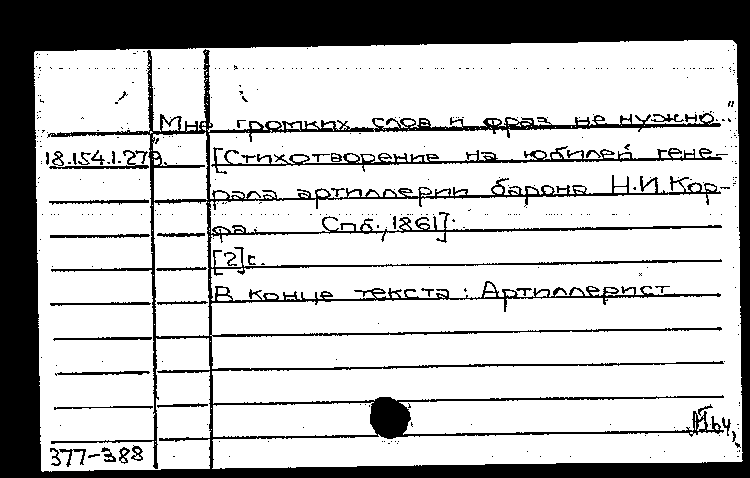 "Мне громких слов и фраз не нужно..."
18.154.1.279. [Стихотворение на юбилей гене-
рала артиллерии барона Н.И.Кор-
фа. Спб., 1861].
[2]с.
В конце текста: Артиллерист
377-388